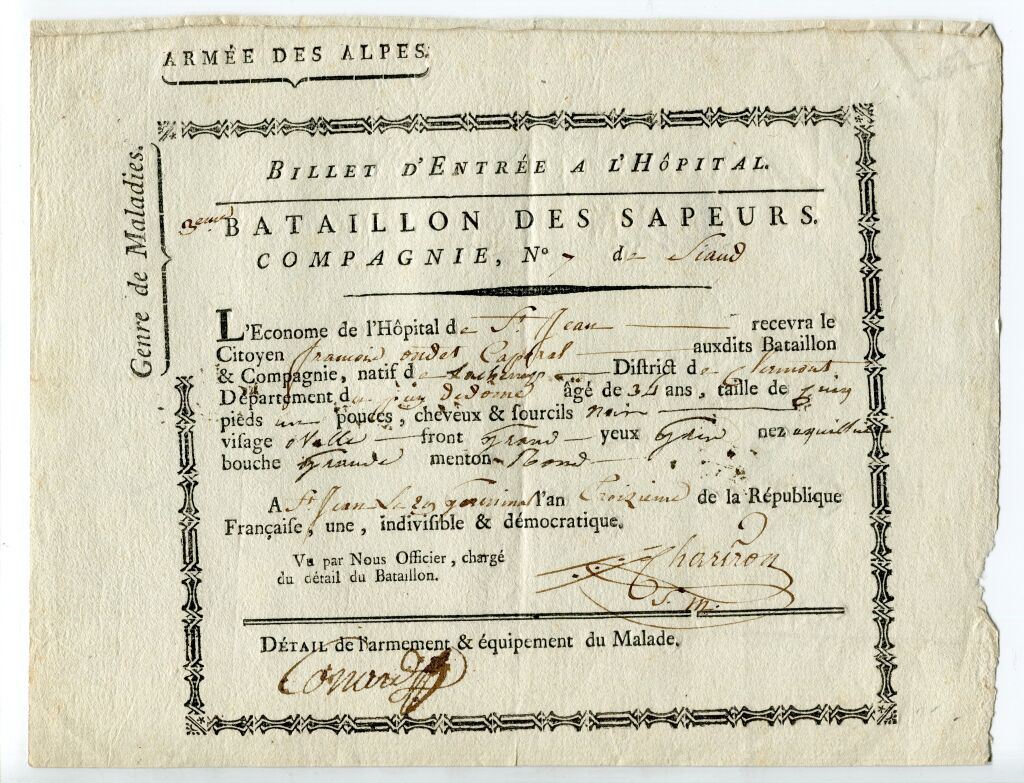 ARMÉE DES ALPES.
Genre de Maladies.
BILLET D'ENTRÉE A L'HÔPITAL.
3eme BATAILLON DES SAPEURS.
COMPAGNIE, No 7 de Siaud
L'Econome de l'Hôpital de St Jean recevra le
Citoyen francois ondet Caporal auxdits Bataillon
& Compagnie, natif d District de Clermont
Département du puy de dome âgé de 34 ans, taille de Cinq
pieds un pouces, cheveux & sourcils noir
visage ovalle front Grand yeux Gris nez aquillin
bouche Grande menton Rond
A St Jean Le 29 Germinal l'an Troizieme de la République
Française, une, indivisible & démocratique.
Vu par Nous Officier, chargé
du détail du Bataillon.
Chartron
S. M.
DÉTAIL de l'armement & équipement du Malade.
Conard